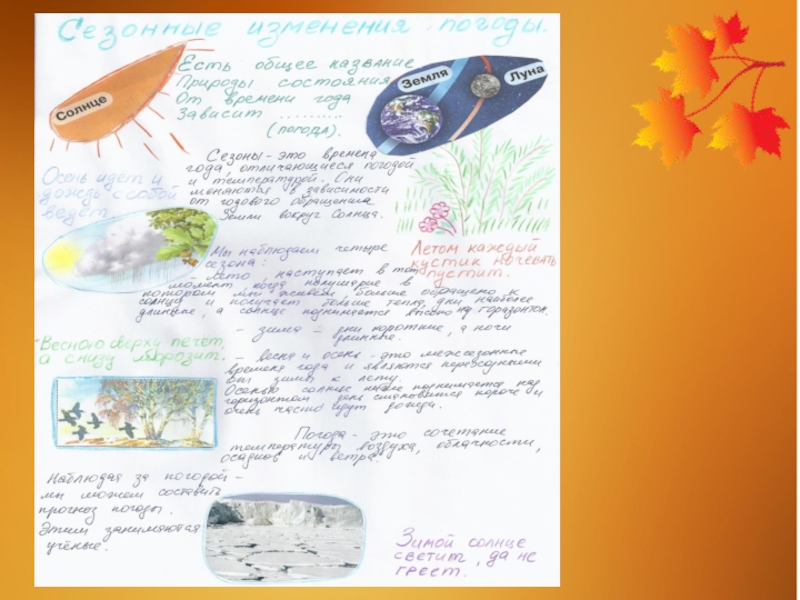 Сезонные изменения погоды.
Есть общее название
Природы состояния
От времени года
Зависит ..........
(погода).
Солнце
Земля
Луна
Сезоны - это времена
года, отличающиеся погодой
и температурой. Они
меняются в зависимости
от годового обращения
Земли вокруг Солнца.
Осень идет и
дождь с собой
ведёт
Летом каждый
кустик ночевать
пустит.
Мы наблюдаем четыре
сезона:
- лето, наступает в тот
момент, когда полушарие в
котором мы живём больше обращено к
солнцу и получает больше тепла, дни наиболее
длинные, а солнце поднимается высоко над горизонтом.
- зима - дни короткие, а ночи
длинные.
Весною сверху печёт,
а снизу морозит.
- весна и осень - это межсезонные
времена года и являются переходными
от зимы к лету.
Осенью солнце ниже поднимается над
горизонтом день становится короче и
очень часто идут дожди.
Погода - это сочетание
температуры воздуха, облачности,
осадков и ветра.
Наблюдая за погодой -
мы можем составить
прогноз погоды.
Этим занимаются
учёные.
Зимой солнце
светит, да не
греет.